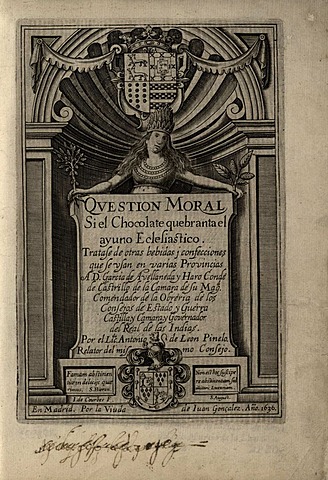 QVESTION MORAL
Si el Chocolate quebranta el
ayuno Eclesiastico.
Tratase de otras bebidas j confecciones
que se vsan en varias Provincias.
A D. Garcia de Avellaneda y Haro Conde
de Castrillo, de la Camara de su Magd.
Comendador de la Obreria, de los
Consejos de Estado y Guerra
Castilla y Camara, y Governador
del Real de las Indias.
Por el Ldo. Antonio de Leon Pinelo
Relator del mismo Consejo.
S. Hieron.
I. de Courbes F.
S. August.
En Madrid, Por la Viuda de Iuan Gonçalez, Año, 1636.